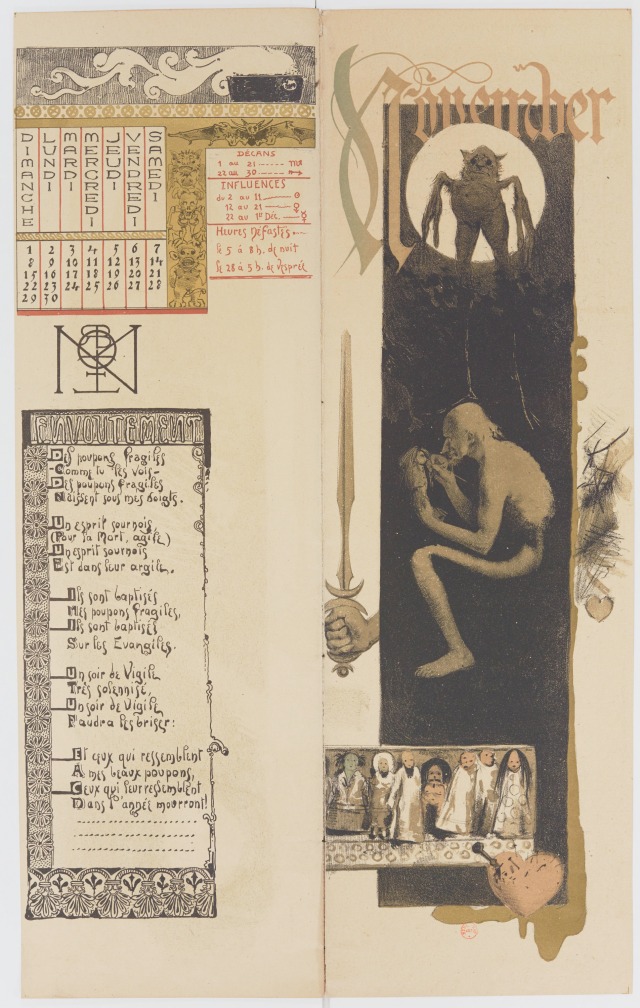 DIMANCHE LUNDI MARDI MERCREDI JEUDI VENDREDI SAMEDI
1 2 3 4 5 6 7
8 9 10 11 12 13 14
15 16 17 18 19 20 21
22 23 24 25 26 27 28
29 30
DÉCANS
1 au 21 ----- ♏
22 au 30 ---- ♐
INFLUENCES
du 2 au 11 ---- ☉
12 au 21 ---- ♀
22 au 1er Déc. --- ☿
Heures Néfastes.
le 5 à 8 h. de nuit
le 28 à 5 h. de vesprée
ENVOUTEMENT
Des poupons fragiles
Comme tu les vois –
Des poupons fragiles
Naissent sous mes doigts.
Un esprit sournois,
(Pour la Mort, agile)
Un esprit sournois
Est dans leur argile.
Ils sont baptisés
Mes poupons fragiles,
Ils sont baptisés
Sur les Evangiles.
Un soir de Vigile
Très solennisé,
Un soir de Vigile
Faudra les briser:
Et ceux qui ressemblent
A mes beaux poupons,
Ceux qui leur ressemblent
Dans l'année mourront!
November